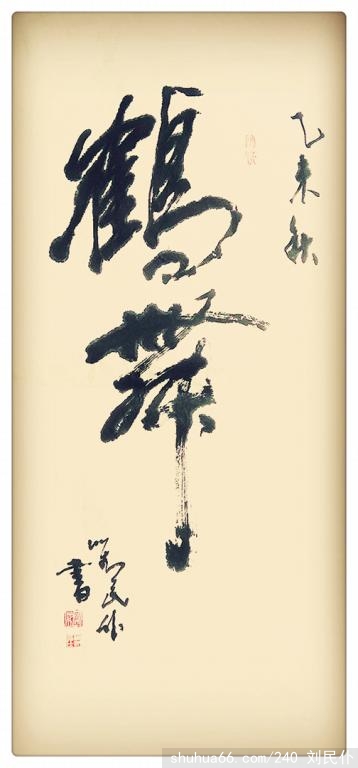 乙未秋
鶴舞
劉民仆
書
shuhua66.com/240 刘民仆